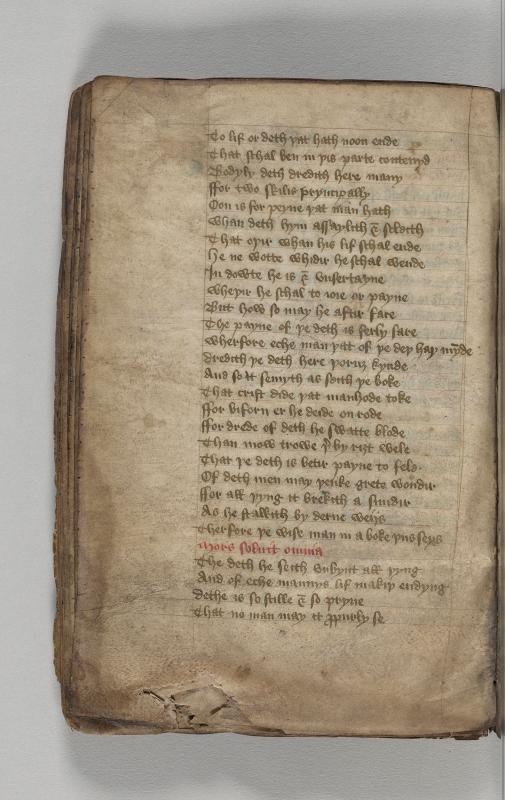 To lif or deth yat hath noon ende
That schal ben in yis parte contenyd
Bodyly deth dredith here many
ffor two skilis pryncipally
Oon is for peyne yat man hath
Whan deth hym assaylith & scloith
That oyir whan his lif schal ende
He ne wotte whidir he schal wende
In dowte he is & vnsertayne
Wheyir he schal to ioie or payne
But how so may he aftir fare
The payne of ye deth is ferly sare
Wherfore eche man yat of ye dey hay mynde
dredith ye deth here kynde
And so it semyth as seith ye boke
That crist dide yat manhode toke
ffor biforn er he deide on rode
ffor drede of deth he swatte blode
Than mow trowe by riȝt wele
That ye deth is betir payne to fele
Of deth men may yenke grete wondir
ffor all yyng it brekith a sundir
As he stallith by derne weyis
Therfore ye wise man in a boke yus seys
Mors soluit omnia
The deth he seith vnbynt all yyng
And of eche mannys lif makiy endyng
dethe is so stille & so pryue
That no man may it ꝓpurly se